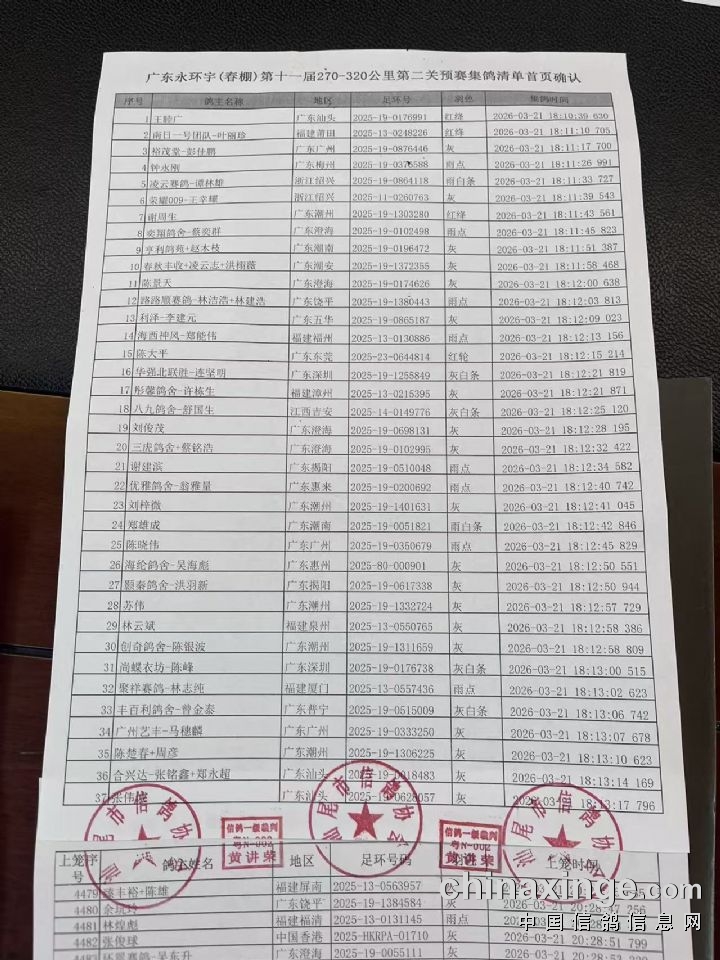 广东永环宇(春棚)第十一届270-320公里第二关预赛集鸽清单首页确认
序号 鸽主名称 地区 足环号 羽色 集鸽时间
1 王睦广 广东汕头 2025-19-0176991 红绛 2026-03-21 18:10:39 630
2 南日一号团队-叶丽珍 福建莆田 2025-13-0248226 红绛 2026-03-21 18:11:10 705
3 裕茂堂-彭佳鹏 广东广州 2025-19-0876446 灰 2026-03-21 18:11:17 700
4 钟永刚 广东梅州 2025-19-0376588 雨点 2026-03-21 18:11:26 991
5 凌云赛鸽-谭林雄 浙江绍兴 2025-19-0864118 雨白条 2026-03-21 18:11:33 727
6 荣耀009-王幸耀 浙江绍兴 2025-11-0260763 灰 2026-03-21 18:11:39 543
7 谢周生 广东潮州 2025-19-1303280 红绛 2026-03-21 18:11:43 561
8 奕翔鸽舍-蔡奕群 广东澄海 2025-19-0102498 雨点 2026-03-21 18:11:45 823
9 亨利鸽苑+赵木枝 广东潮南 2025-19-0196472 灰 2026-03-21 18:11:51 387
10 春秋丰收+凌云志+洪雨薇 广东潮安 2025-19-1372355 灰 2026-03-21 18:11:58 468
11 陈景天 广东澄海 2025-19-0174626 灰 2026-03-21 18:12:00 638
12 路路顺赛鸽-林洁浩+林建浩 广东饶平 2025-19-1380443 雨点 2026-03-21 18:12:03 813
13 利泽-李建元 广东五华 2025-19-0865187 灰 2026-03-21 18:12:09 023
14 海西神风-郑能伟 福建福州 2025-13-0130886 雨点 2026-03-21 18:12:13 156
15 陈大平 广东东莞 2025-23-0644814 红轮 2026-03-21 18:12:15 214
16 华强北联胜-连坚明 广东深圳 2025-19-1255849 灰白条 2026-03-21 18:12:21 819
17 彤馨鸽舍-许栋生 福建漳州 2025-13-0215395 灰 2026-03-21 18:12:21 871
18 八九鸽舍-舒国生 江西吉安 2025-14-0149776 灰白条 2026-03-21 18:12:25 120
19 刘俊茂 广东澄海 2025-19-0698131 灰 2026-03-21 18:12:28 195
20 三虎鸽舍+蔡铭浩 广东澄海 2025-19-0102995 灰 2026-03-21 18:12:32 422
21 谢建滨 广东揭阳 2025-19-0510048 雨点 2026-03-21 18:12:34 582
22 优雅鸽舍-翁雅量 广东惠来 2025-19-0200692 雨点 2026-03-21 18:12:40 742
23 刘梓微 广东潮州 2025-19-1401631 灰 2026-03-21 18:12:41 045
24 郑雄成 广东潮南 2025-19-0051821 雨白条 2026-03-21 18:12:42 846
25 陈晓伟 广东广州 2025-19-0350679 雨点 2026-03-21 18:12:45 829
26 海纶鸽舍-吴海彪 广东惠州 2025-80-000901 灰 2026-03-21 18:12:50 551
27 颢秦鸽舍-洪羽新 广东揭阳 2025-19-0617338 灰 2026-03-21 18:12:50 944
28 苏伟 广东潮州 2025-19-1332724 灰 2026-03-21 18:12:57 729
29 林云斌 福建泉州 2025-13-0550765 灰 2026-03-21 18:12:58 386
30 创奇鸽舍-陈银波 广东潮州 2025-19-1311659 灰 2026-03-21 18:12:58 809
31 尚蝶衣坊-陈峰 广东深圳 2025-19-0176738 灰白条 2026-03-21 18:13:00 515
32 聚祥赛鸽-林志纯 福建厦门 2025-13-0557436 雨点 2026-03-21 18:13:02 623
33 丰百利鸽舍-曾金泰 广东普宁 2025-19-0515009 灰白条 2026-03-21 18:13:06 742
34 广州艺丰-马穗麟 广东广州 2025-19-0333250 灰 2026-03-21 18:13:07 678
35 陈楚春+周彦 广东潮州 2025-19-1306225 灰 2026-03-21 18:13:10 623
36 合兴达-张铭鑫+郑永超 广东汕头 0018483 灰 2026-03-21 18:13:14 169
37 张伟 广东汕头 2025-19-0628057 灰 2026-03-21 18:13:17 796
汕尾市信鸽协会
信鸽一级裁判
粤N-002
黄讲荣
汕尾市信鸽协会
信鸽一级裁判
粤N-002
黄讲荣
汕尾市信鸽协会
上笼序号 鸽主姓名 地区 足环号码 羽色 上笼时间
4479 臻丰裕+陈雄 福建屏南 2025-13-0563957
4480 余玩玲 广东饶平 2025-19-1384584 灰 20:28:47 256
4481 林煌彪 福建福清 2025-13-0131145 雨点
4482 张俊球 中国香港 2025-HKRPA-01710 灰 20:28:51 799
4483 吴东升 广东澄海 2025-19-0055111 灰
chinaxinge.com
中国信鸽信息网